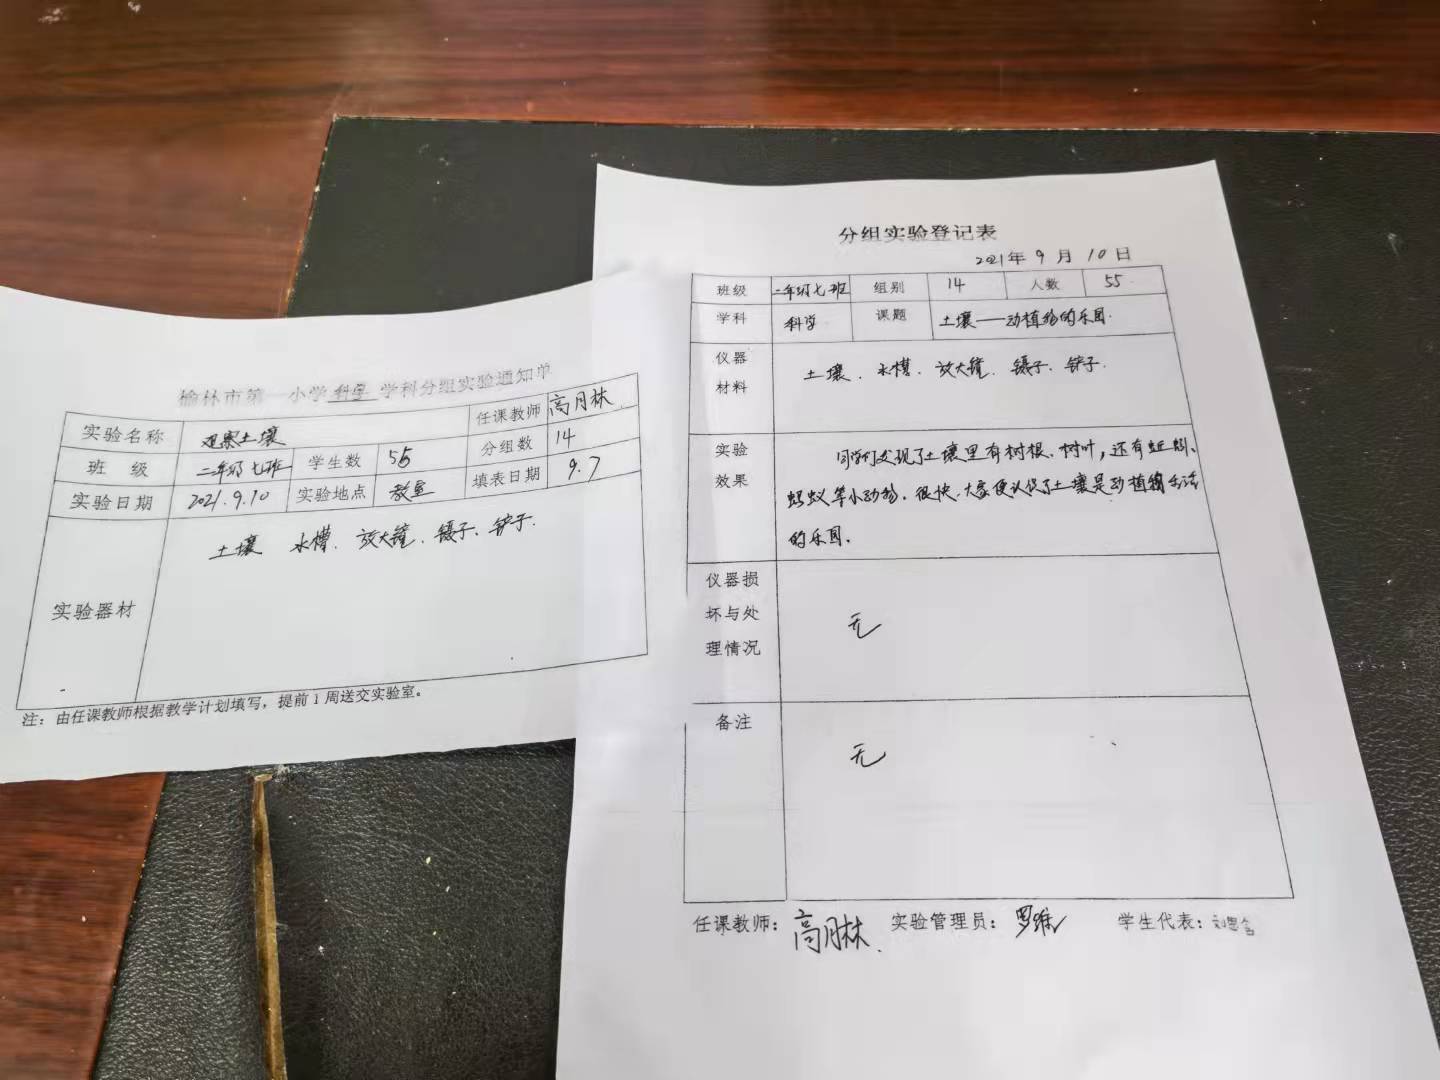 榆林市第一小学科学学科分组实验通知单
实验名称 观察土壤 任课教师 高月林
班 级 二年级七班 学生数 55 分组数 14
实验日期 2021.9.10 实验地点 教室 填表日期 9.7
实验器材 土壤 水槽、放大镜、镊子、铲子.
注：由任课教师根据教学计划填写，提前1周送交实验室。
分组实验登记表
2021年 9 月 10 日
班级 二年级七班 组别 14 人数 55
学科 科学 课题 土壤——动植物的乐园.
仪器材料 土壤、水槽、放大镜、镊子、铲子.
实验效果 同学们发现了土壤里有树根、树叶，还有蚯蚓、
蚂蚁等小动物.很快.大家便认识了土壤是动植物生活
的乐园.
仪器损坏与处理情况 无
备注 无
任课教师：高月林. 实验管理员：罗维 学生代表：刘思含